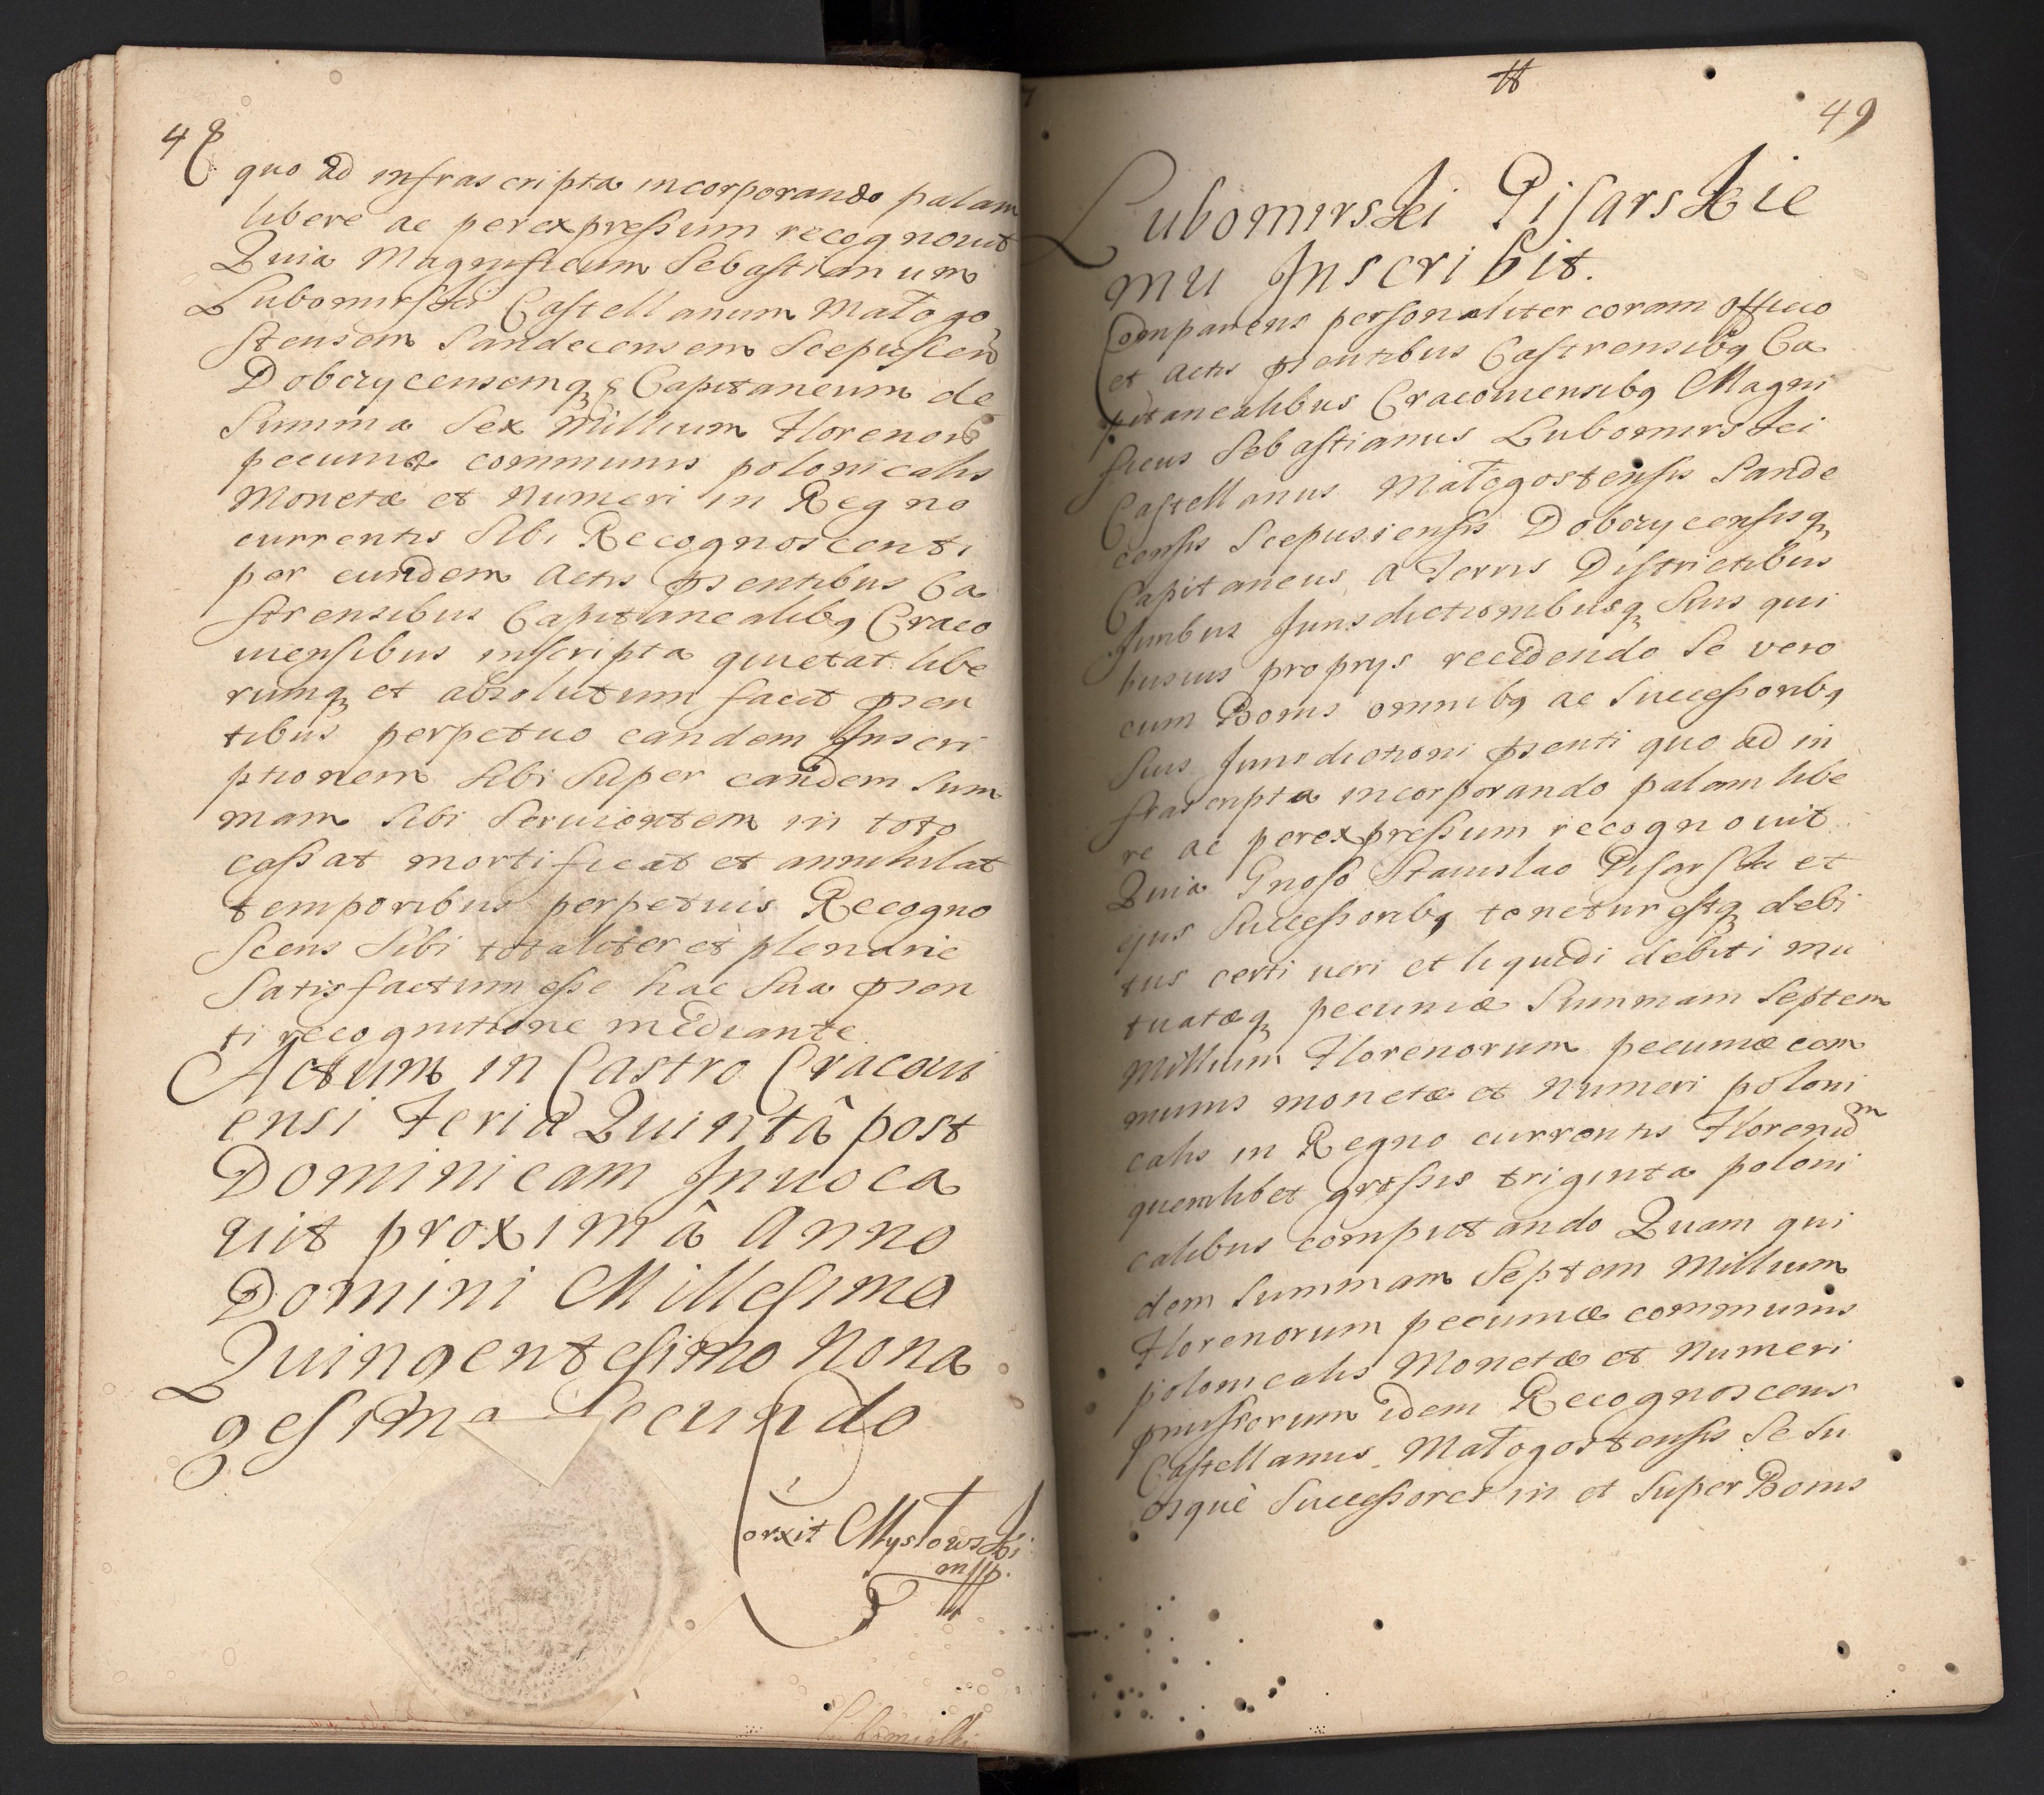 48
quo ad infrascripta incorporando palam
libere ac per expressum recognovit
Quia Magnificum Sebastianum
Lubomirski Castellanum Małogo
stensem Sandecensem Scepusien
Dobczycensemq; Capitaneum de
Summa Sex Millium Florenor
pecuniæ communis polonicalis
Monetæ et Numeri in Regno
currentis Sibi Recognoscenti
per eundem Actis psentibus Ca
strensibus Capitanealibq Craco
uiensibus inscripta quietat libe
rumq; et absolutum facit psen
tibus perpetuo eandem Inscri
ptionem Sibi Super eandem Sum
mam Sibi Seruientem in toto
cassat mortificat et annihilat
temporibus perpetuis Recogno
Scens Sibi totaliter et plenarie
Satisfactum esse hac Sua psen
ti recognitione mediante.
Actum in Castro Cracoui
ensi Feria Quintâ post
Dominicam Inuoca
uit proximâ Anno
Domini Millesimo
Quingentesimo Nona
gesimo Secundo
Correxit Mysłowski
mpp.
49
Lubomirski Pisarskie
mu Inscribit.
Comparens personaliter coram officio
et Actis psentibus Castrensibq Ca
pitanealibus Cracouiensibq Magni
ficus Sebastianus Lubomirski
Castellanus Małogostensis Sande
censis Scepusiensis Dobczycensisq;
Capitaneus a Terris Districtibus
Juribus Jurisdictionibusq; Suis qui
busuis proprys recedendo Se vero
cum Bonis omnibq ac Successoribq
Suis Jurisdictioni psenti quo ad in
frascripta incorporando palam libe
re ac per expressum recognouit
Quia Gnoso Stanislao Pisarski et
ejus Successoribq tenetur estq; debi
tus certi ueri et liquidi debiti mu
tuatæq; pecuniæ Summam Septem
Millium Florenorum pecuniæ com
munis monetæ et Numeri poloni
calis in Regno currentis Florenū
quemlibet grossis triginta poloni
calibus computando Quam qui
dem Summam Septem Millium
Florenorum pecuniæ communis
polonicalis Monetæ et Numeri
pmissorum idem Recognoscens
Castellanus Małogostensis Se Su
osquè Successores in et Super Bonis